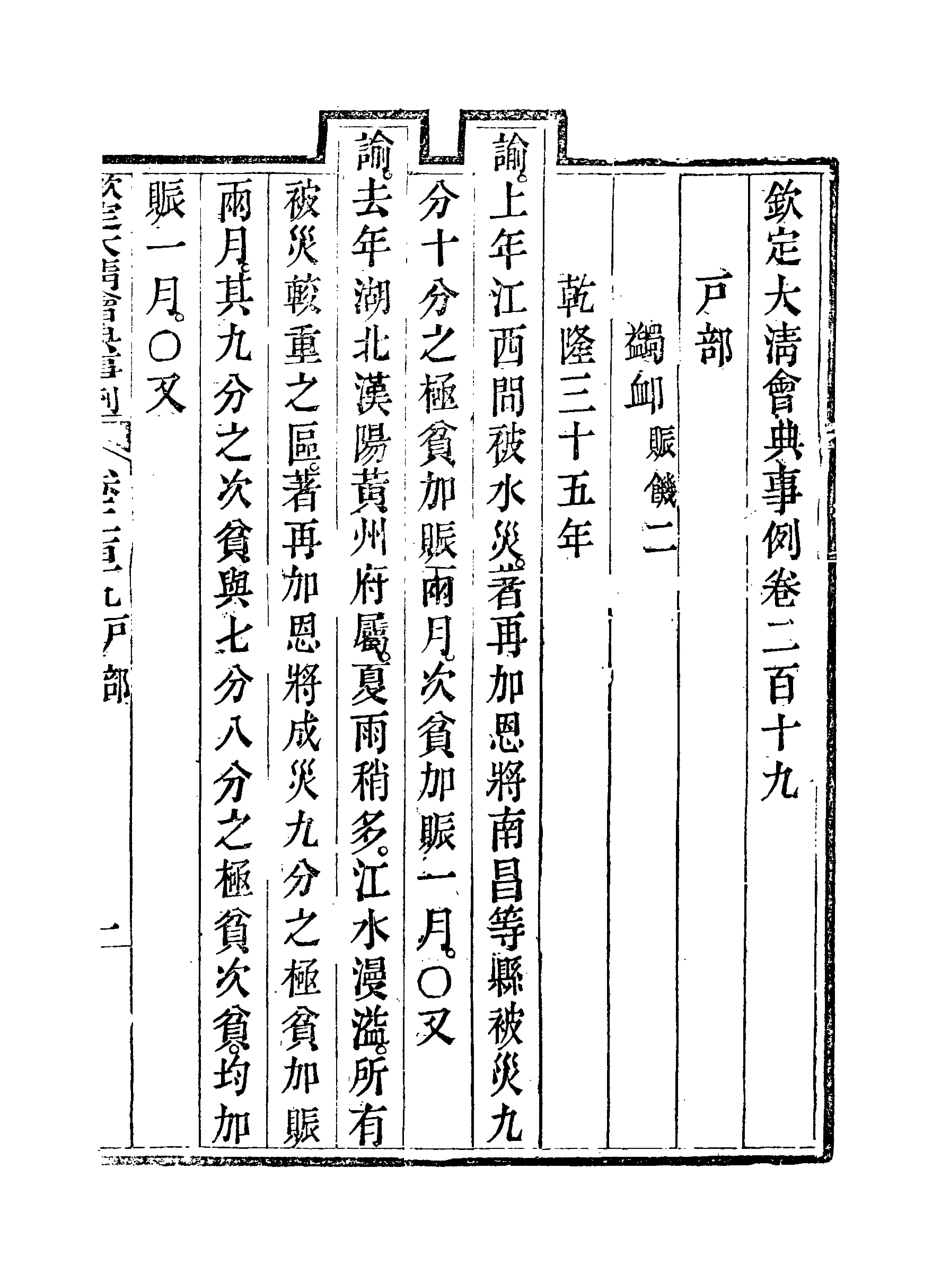 欽定大淸會典事例卷二百十九
戸部
蠲卹賑饑二
乾隆三十五年
諭。上年江西閒被水災。著再加恩將南昌等縣被災九
分十分之極貧加賑兩月。次貧加賑一月。○又
諭。去年湖北漢陽黃州府屬。夏雨稍多。江水漫溢。所有
被災較重之區。著再加恩將成災九分之極貧加賑
兩月。其九分之次貧與七分八分之極貧次貧。均加
賑一月。○又
欽定大淸會典事例 卷二百十九 戸部 一